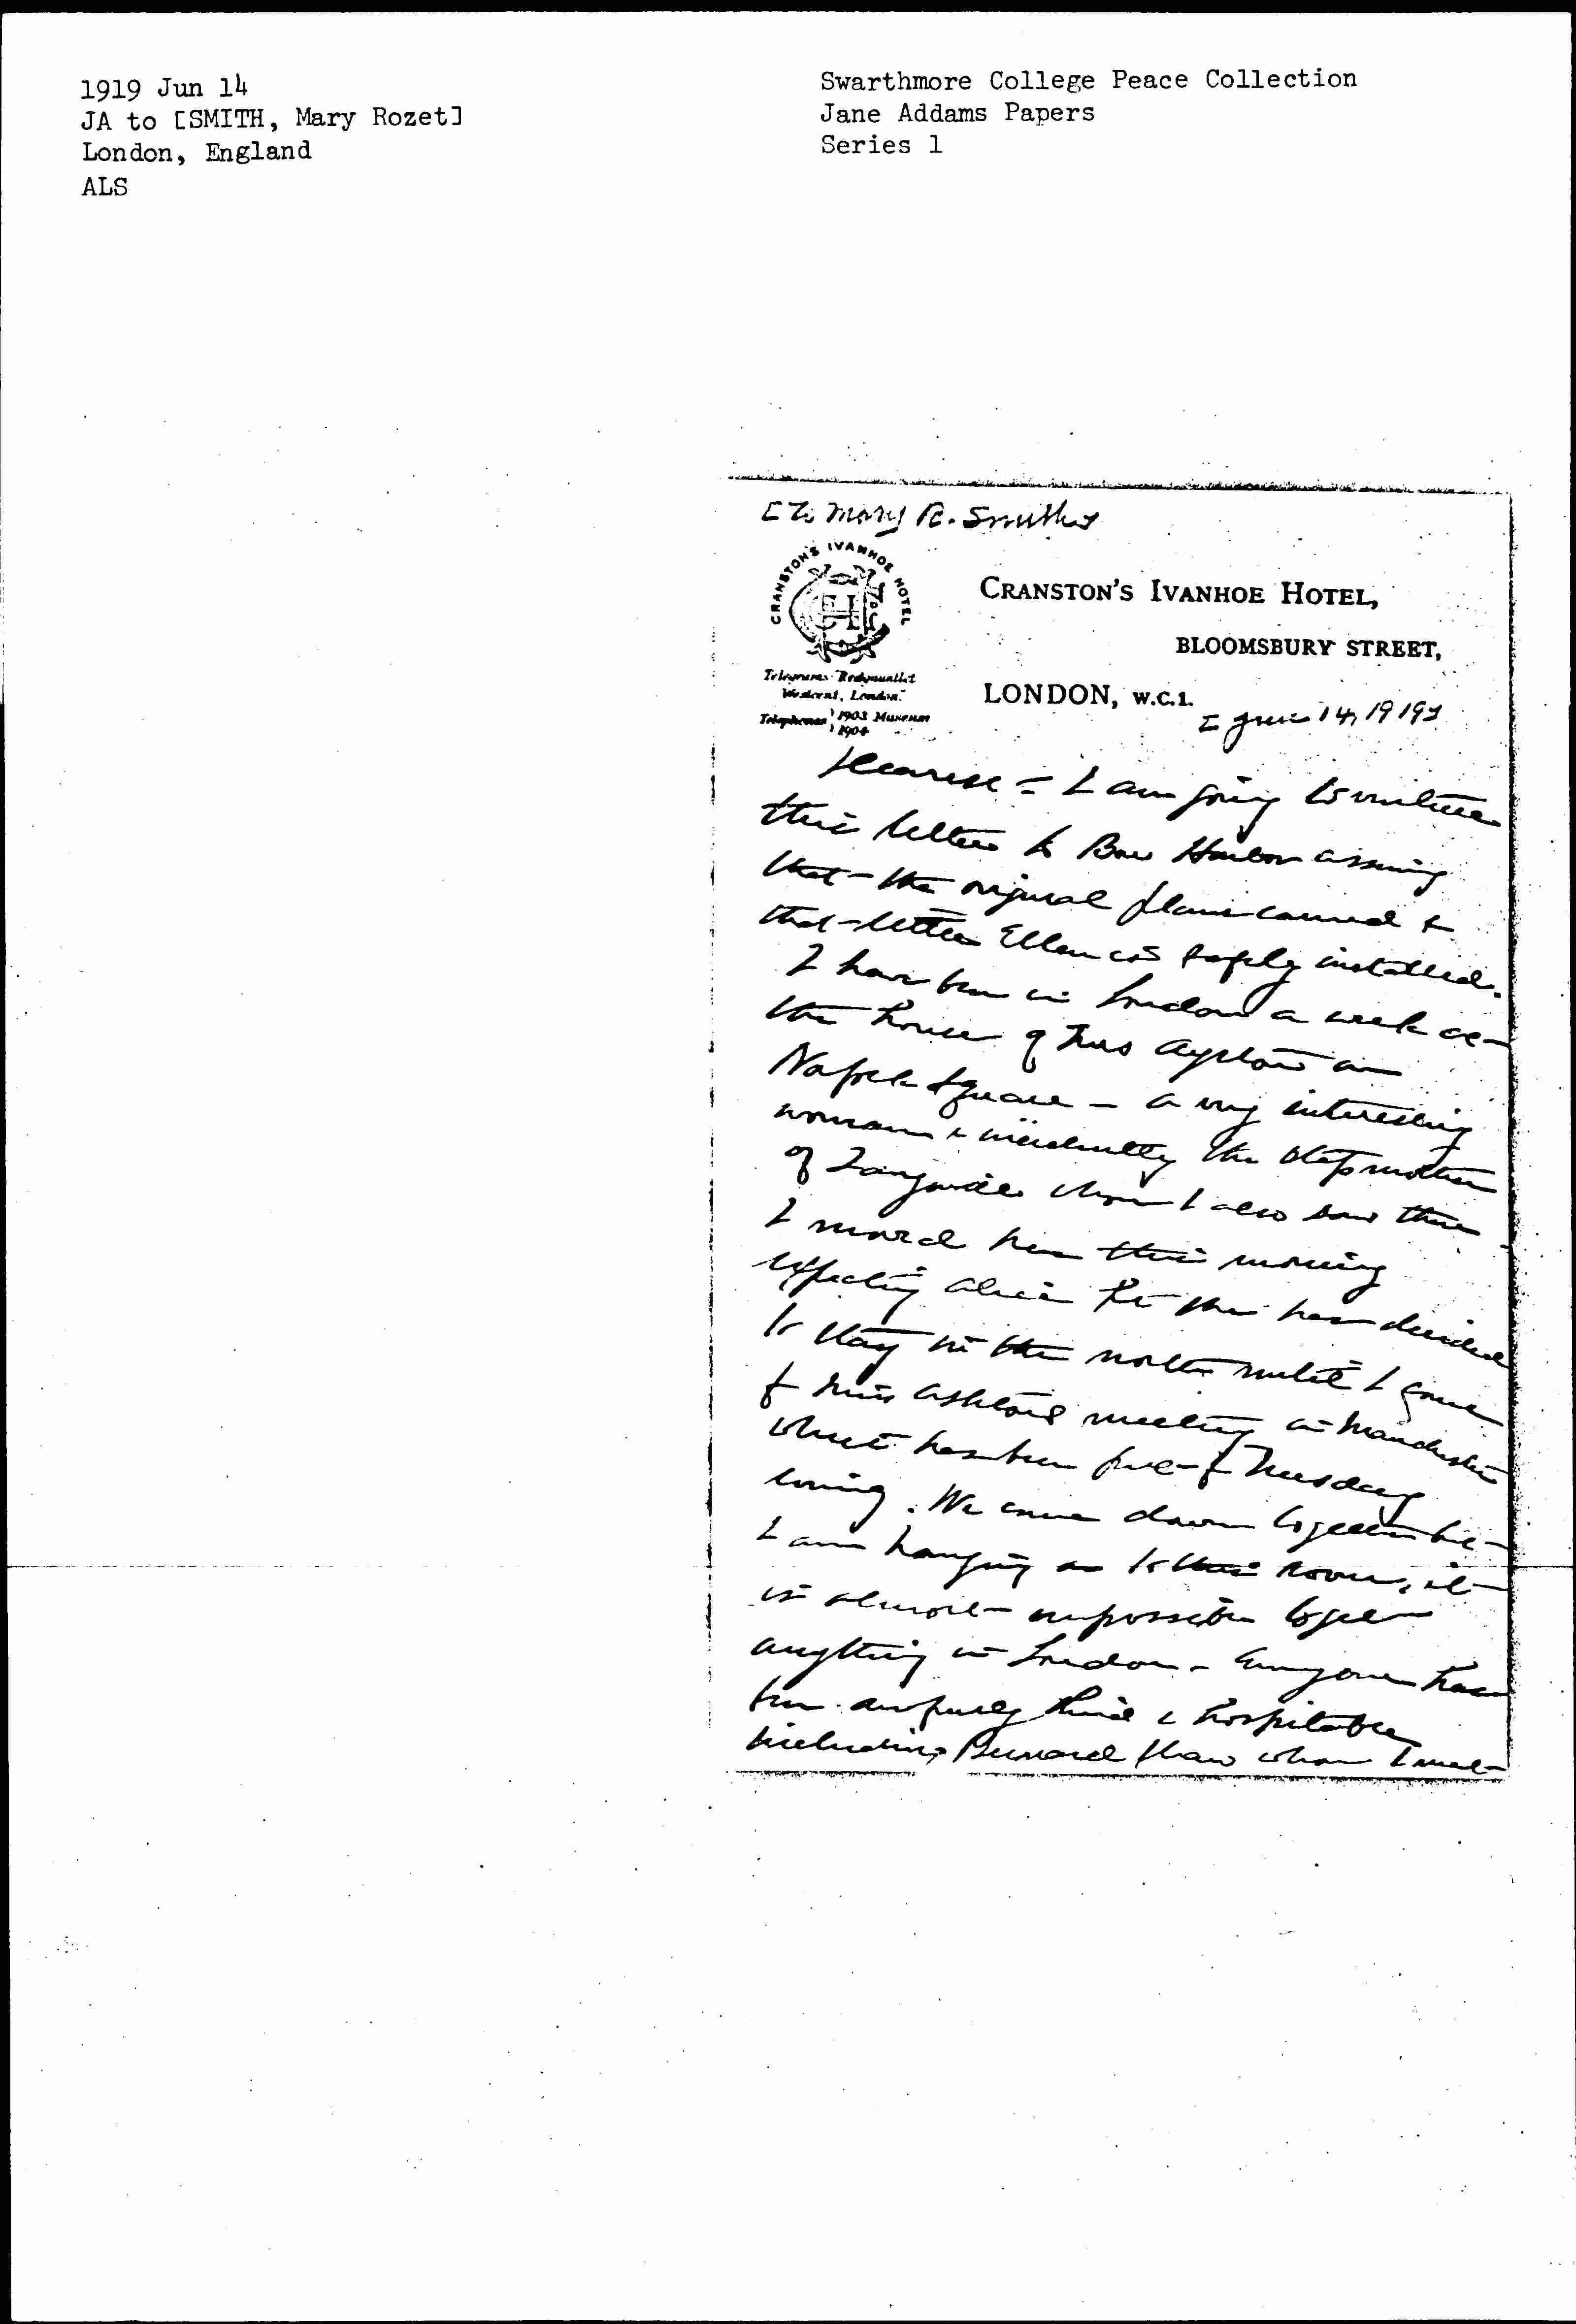 1919 Jun 14
JA to [SMITH, Mary Rozet]
London, England
ALS
Swarthmore College Peace Collection
Jane Addams Papers
Series 1
[To Mary R. Smith]
CRANSTON'S IVANHOE HOTEL
CRANSTON'S IVANHOE HOTEL,
BLOOMSBURY STREET,
LONDON, W.C.1.
Telegrams
Westcent, London."
Telephones 1903 Museum
1904
[June 14, 1919]
Dearest - I am going to venture
this letter to Bar Harbor assuming
that the original plans carried &
that Ellen is safely installed.
I have been in London a week at
the house of Mrs
Square - a very interesting
woman & incidentally the stepmother
of whom I also saw there
I moved here this morning
expecting Alice but she has decided
to stay in the north until I come
for Miss Ashton's meeting in Manchester
which has been fixed for Tuesday
evening. We come down together but
I am hanging on to this room, it
is almost impossible to get
anything in London - Everyone has
been awfully kind & hospitable
including Bernard Shaw whom I met